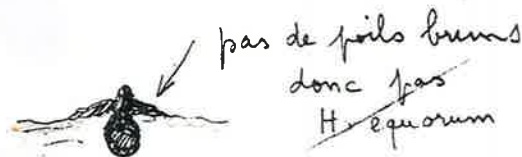 pas de poils bruns
donc pas
H. equorum